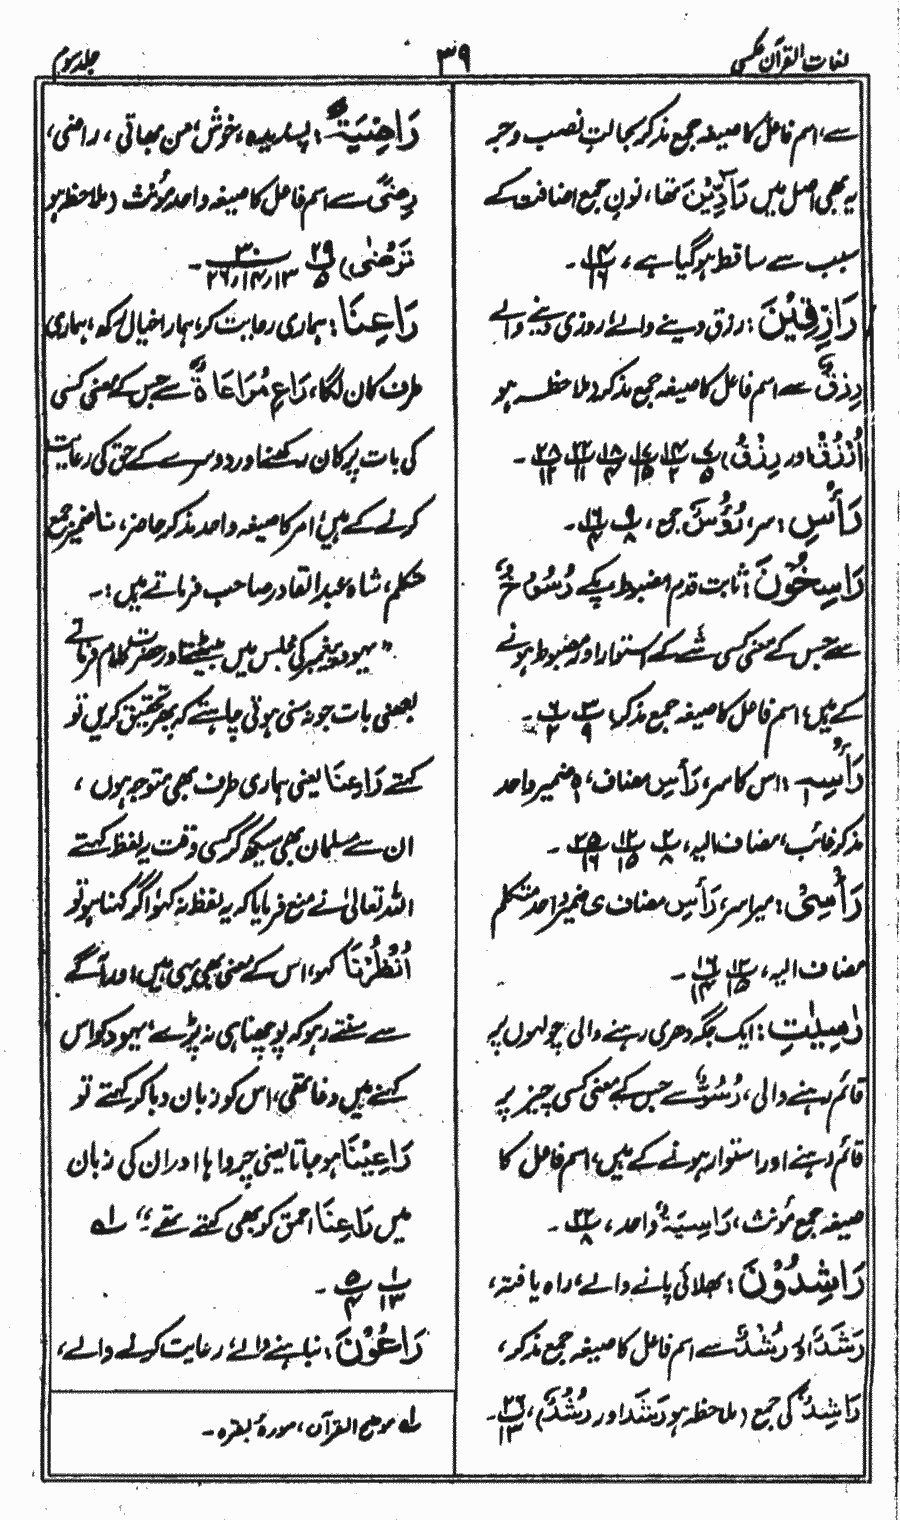 لغات القرآن عکسی
۳۹
جلد سوم
سے، اسم فاعل کا صیغہ جمع مذکر بحالت نصب و جر
یہ بھی اصل میں رَادِّیْنَ تھا، نون جمع اضافت کے
سبب سے ساقط ہوگیا ہے، ۱۴/۱۶۔
رَازِقِیْنَ: رزق دینے والے، روزی دینے والے
رِزْقٌ سے اسم فاعل کا صیغہ جمع مذکر (ملاحظہ ہو
اُرْزُقْ اور رِزْقٌ)
رَأْسِ: سر، رُؤُسٌ جمع، ۹/۸ ۱۶/۴۔
رَاسِخُوْنَ: ثابت قدم، مضبوط، پکے رُسُوْخٌ
سے جس کے معنی کسی شے کے استوار اور مضبوط ہونے
کے ہیں، اسم فاعل کا صیغہ جمع مذکر، ۳/۹ ۶/۲۔
رَأْسِہٖ: اس کا سر، رَأْسِ مضاف، ہٖ ضمیر واحد
مذکر غائب، مضاف الیہ، ۲/۸ ۱۲/۱۵ ۲۵/۱۶۔
رَأْسِیْ: میرا سر، رَأْسِ مضاف ی ضمیر واحد متکلم
مضاف الیہ، ۱۲/۱۵ ۱۶/۴۔
رٰسِیٰتٍ: ایک جگہ دھری رہنے والی چولہوں پر
قائم رہنے والی، رُسُوٌّ سے جس کے معنی کسی چیز پر
قائم رہنے اور استوار ہونے کے ہیں، اسم فاعل کا
صیغہ جمع مؤنث، رَاسِیَۃٌ واحد، ۲۲/۸۔
رَاشِدُوْنَ: بھلائی پانے والے، راہ یافتہ،
رَشَدٌ اور رُشْدٌ سے اسم فاعل کا صیغہ جمع مذکر،
رَاشِدٌ کی جمع (ملاحظہ ہو رَشَدا اور رُشْدٌ)، ۲۶/۱۳۔
رَاضِیَۃً: پسندیدہ، خوش، من بھاتی، راضی،
رِضًی سے اسم فاعل کا صیغہ واحد مؤنث (ملاحظہ ہو
تَرْضٰی) ۲۹/۵ ۳۰/۱۳،۱۴،۲۶۔
رَاعِنَا: ہماری رعایت کر، ہمارا خیال رکھ، ہماری
طرف کان لگا، رَاعِ مُرَاعَاۃٌ سے جس کے معنی کسی
کی بات پر کان رکھنے اور دوسرے کے حق کی رعایت
کرنے کے ہیں، امر کا صیغہ واحد مذکر حاضر، نا ضمیر جمع
متکلم، شاہ عبدالقادر صاحب فرماتے ہیں:۔
”یہود پیغمبر کی مجلس میں بیٹھتے اور حضرت کلام فرماتے
بعضی بات جو نہ سنی ہوتی چاہتے کہ پھر تحقیق کریں تو
کہتے رَاعِنَا یعنی ہماری طرف بھی متوجہ ہوں،
ان سے مسلمان بھی سیکھ کر کسی وقت یہ لفظ کہتے
اللہ تعالیٰ نے منع فرمایا کہ یہ لفظ نہ کہو، اگر کہنا ہو تو
اُنْظُرْنَا کہو، اس کے معنی بھی یہی ہیں، اور آگے
سے سنتے رہو کہ پوچھنا ہی نہ پڑے، یہود کو اس
کہنے میں دغا تھی، اس کو زبان دبا کر کہتے تو
رَاعِیْنَا ہو جاتا یعنی چرواہا، اور ان کی زبان
میں رَاعِنَا احمق کو بھی کہتے تھے۔“ لہ
۱/۱۳ ۵/۴۔
رَاعُوْنَ: نباہنے والے، رعایت کرنے والے،
لہ موضح القرآن، سورۂ بقرہ۔